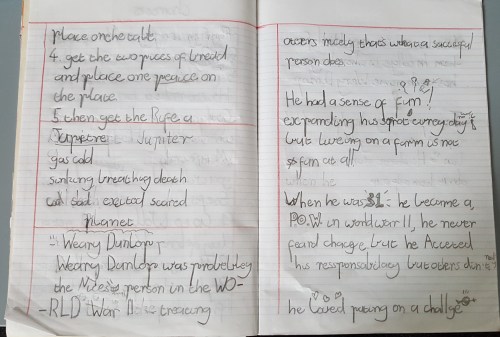 place on the table
4. get the two pieces of bread
and place one peace on
the plate
5 then get the Kife a
Jupetre Jupiter
gas cold
sinking breathing death
bad exeted scared
planet
Weary Dunlop
Weary Dunlop was probebley
the Nices person in the WO-
-RLD War II he treating
others nicely that's what a sucsesful
person does.
? ? ?
He had a sense of fun!
expanding his every day
but living on a farm is not
fun at all
When he was 31 he became a
P.O.W in world war II, he never
feard change, but he Acceved
his responsabilaty but others
he Loved puting on a challge